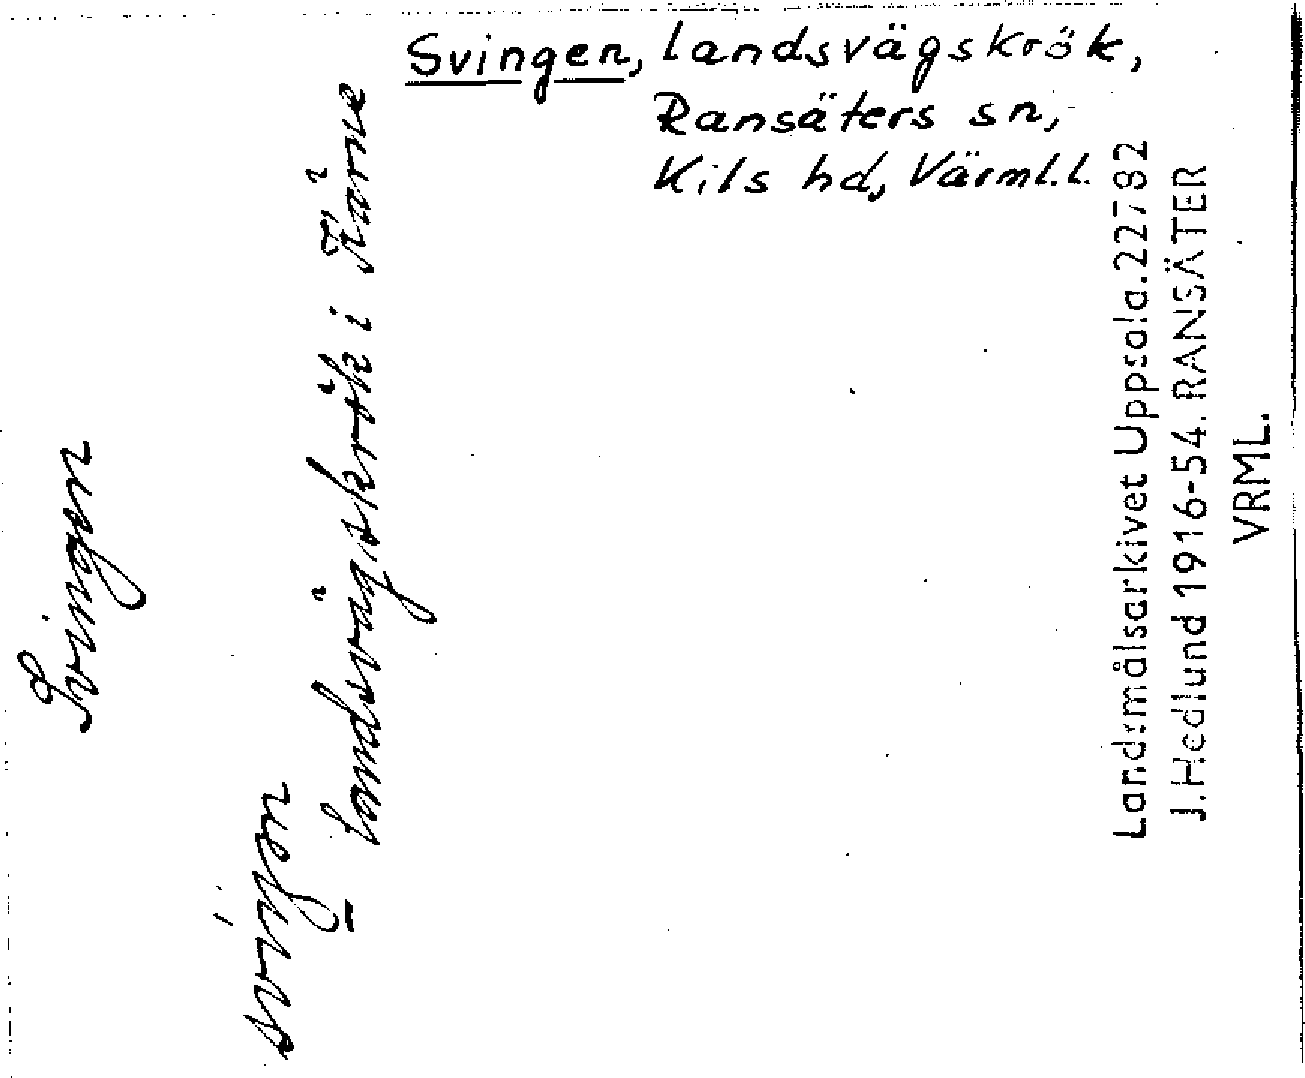 Svingen, landsvägskrök,
Ransäters sn,
Kils hd, Värml.l.
Svingen
svingen
landsvägskrök i Kärne
Landsmålsarkivet Uppsala.22782
J.Hedlund 1916-54. RANSÄTER
VRML.